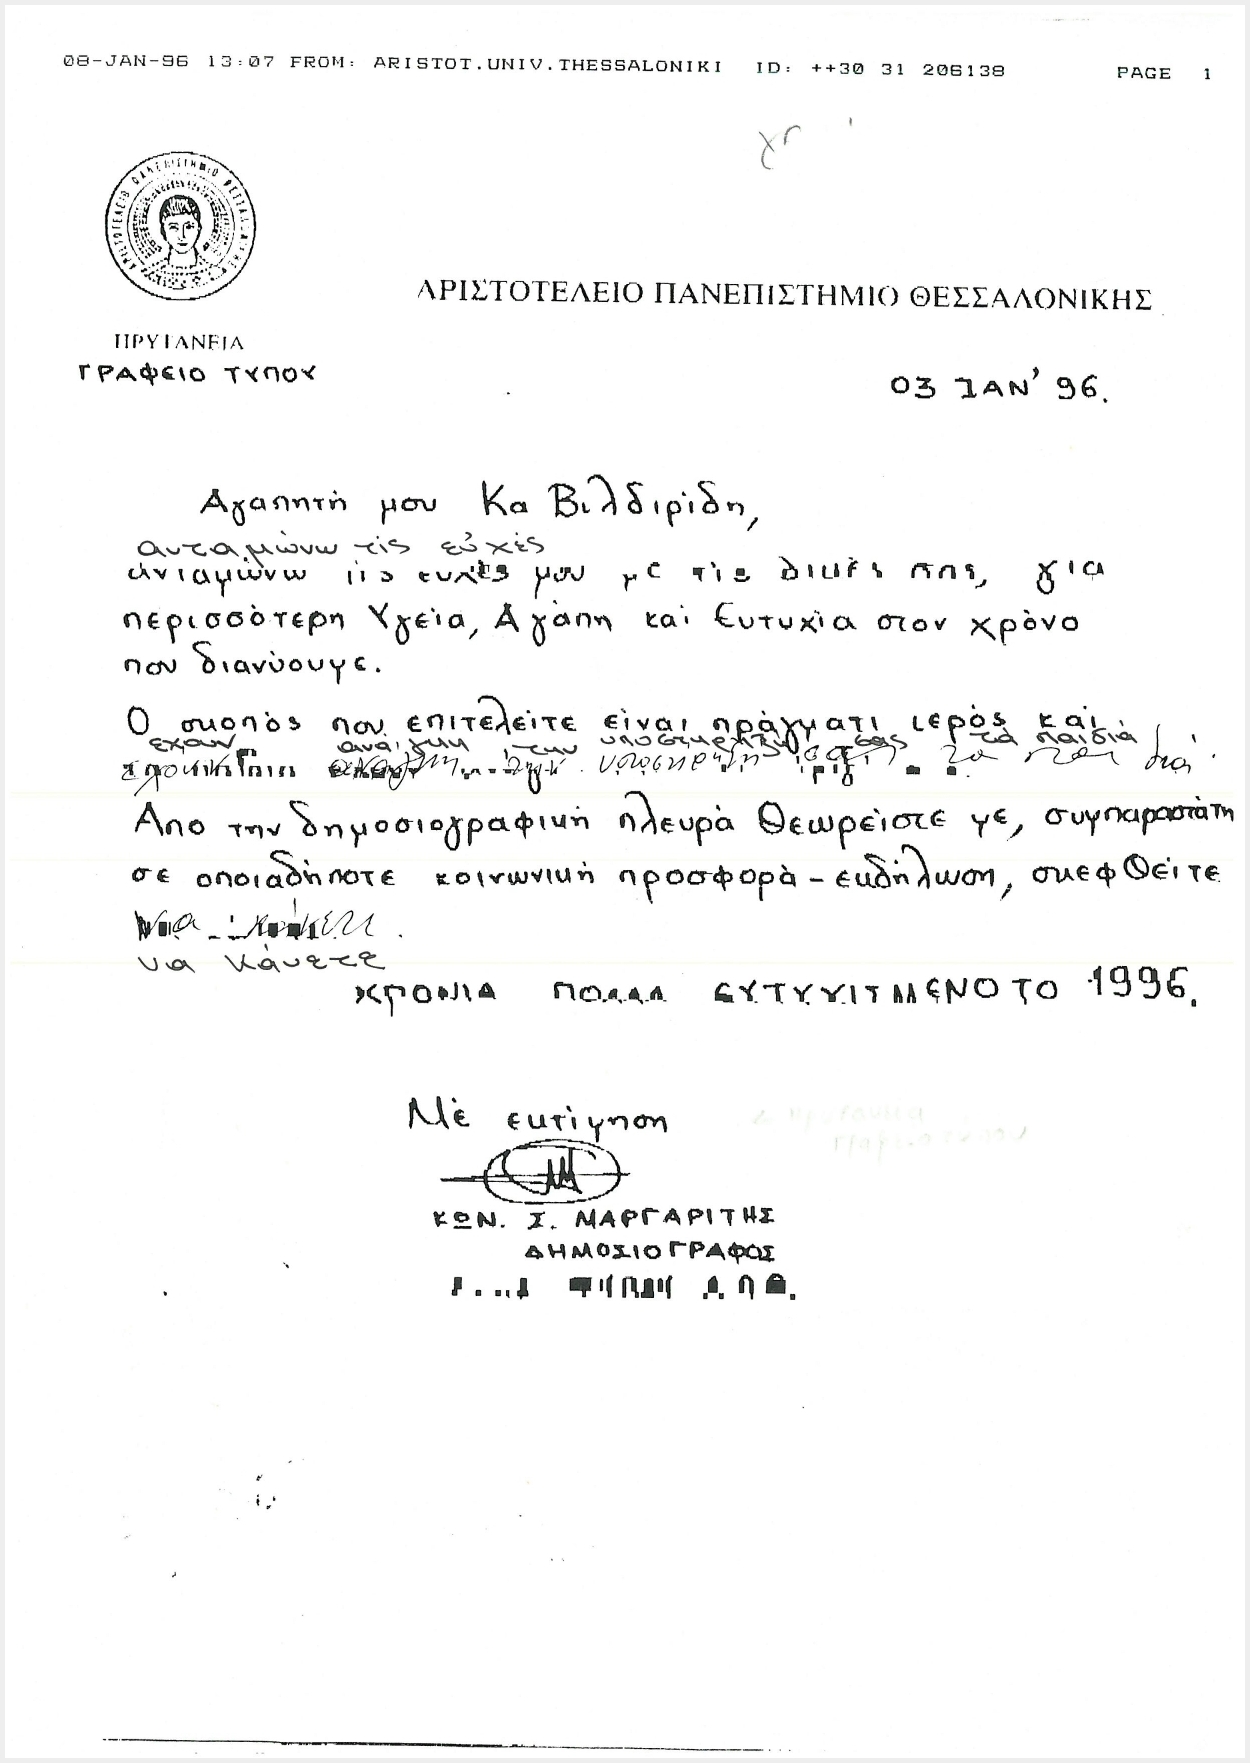 08-JAN-96 13:07 FROM: ARISTOT.UNIV.THESSALONIKI ID: ++30 31 206138 PAGE 1
ΑΡΙΣΤΟΤΕΛΕΙΟ ΠΑΝΕΠΙΣΤΗΜΙΟ ΘΕΣΣΑΛΟΝΙΚΗΣ
ΑΡΙΣΤΟΤΕΛΕΙΟ ΠΑΝΕΠΙΣΤΗΜΙΟ ΘΕΣΣΑΛΟΝΙΚΗΣ
ΠΡΥΤΑΝΕΙΑ
ΓΡΑΦΕΙΟ ΤΥΠΟΥ
03 ΙΑΝ' 96.
Αγαπητή μου Κα Βιλδιρίδη,
ανταμώνω τίς εὐχές
ανταμώνω τις ευχές μου με τίς δικές σας, για
περισσότερη Υγεία, Αγάπη καί Ευτυχία στον χρόνο
που διανύουμε.
Ο σκοπός που επιτελείτε είναι πράγματι ιερός καί
εχουν ανάγκη την υποστήριξη σας τα παιδιά
Απο την δημοσιογραφική πλευρά Θεωρείστε με, συμπαραστάτη
σε οποιαδήποτε κοινωνική προσφορά - εκδήλωση, σκεφθείτε
να κάνετε
ΧΡΟΝΙΑ ΠΟΛΛΑ ΕΥΤΥΧΙΣΜΕΝΟ ΤΟ 1996.
Μέ εκτίμηση
ΚΩΝ. Σ. ΜΑΡΓΑΡΙΤΗΣ
ΔΗΜΟΣΙΟΓΡΑΦΟΣ
Α.Π.Θ.
Πρυτανεια
Γραφειο τυπου